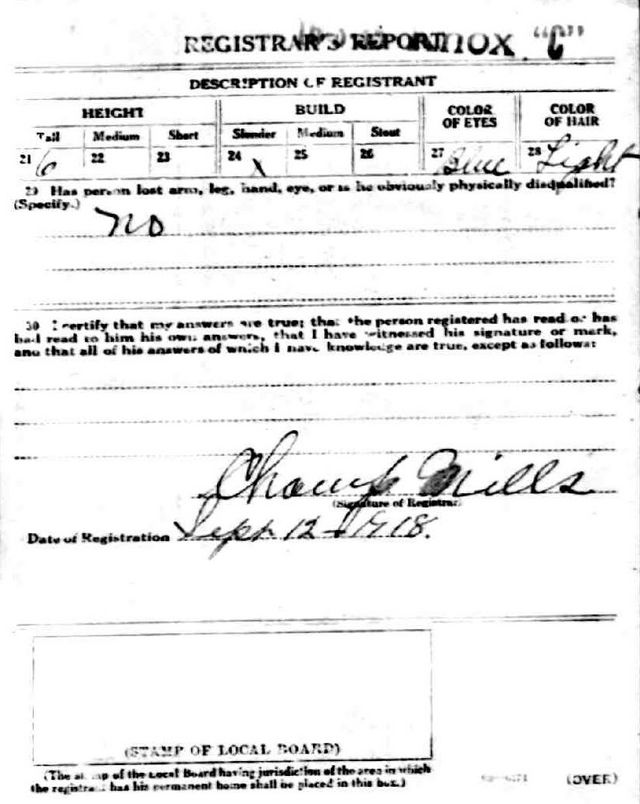 REGISTRAR'S REPORT KNOX. "C"
DESCRIPTION OF REGISTRANT
HEIGHT BUILD COLOR OF EYES COLOR OF HAIR
Tall Medium Short Slender Medium Stout
21 6 22 23 24 x 25 26 27 Blue 28 Light
29 Has person lost arm, leg, hand, eye, or is he obviously physically disqualified?
(Specify.) no
30 I certify that my answers are true; that the person registered has read or has
had read to him his own answers, that I have witnessed his signature or mark,
and that all of his answers of which I have knowledge are true, except as follows:
Champ Mills
(Signature of Registrar)
Date of Registration Sept 12 - 1918.
(STAMP OF LOCAL BOARD)
(The stamp of the Local Board having jurisdiction of the area in which
the registrant has his permanent home shall be placed in this box.)
(OVER)